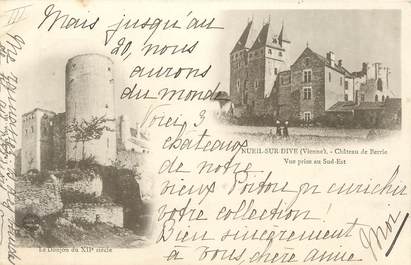 Mais jusqu'au
20 nous
aurons
du monde
Voici 3
chateaux
de notre
vieux Poitou pr enrichir
votre collection!
Bien sincèrement
à vous, chère amie
NUEIL-SUR-DIVE (Vienne). - Château de Berrie
Vue prise au Sud-Est
Le Donjon du XIIe siècle
III